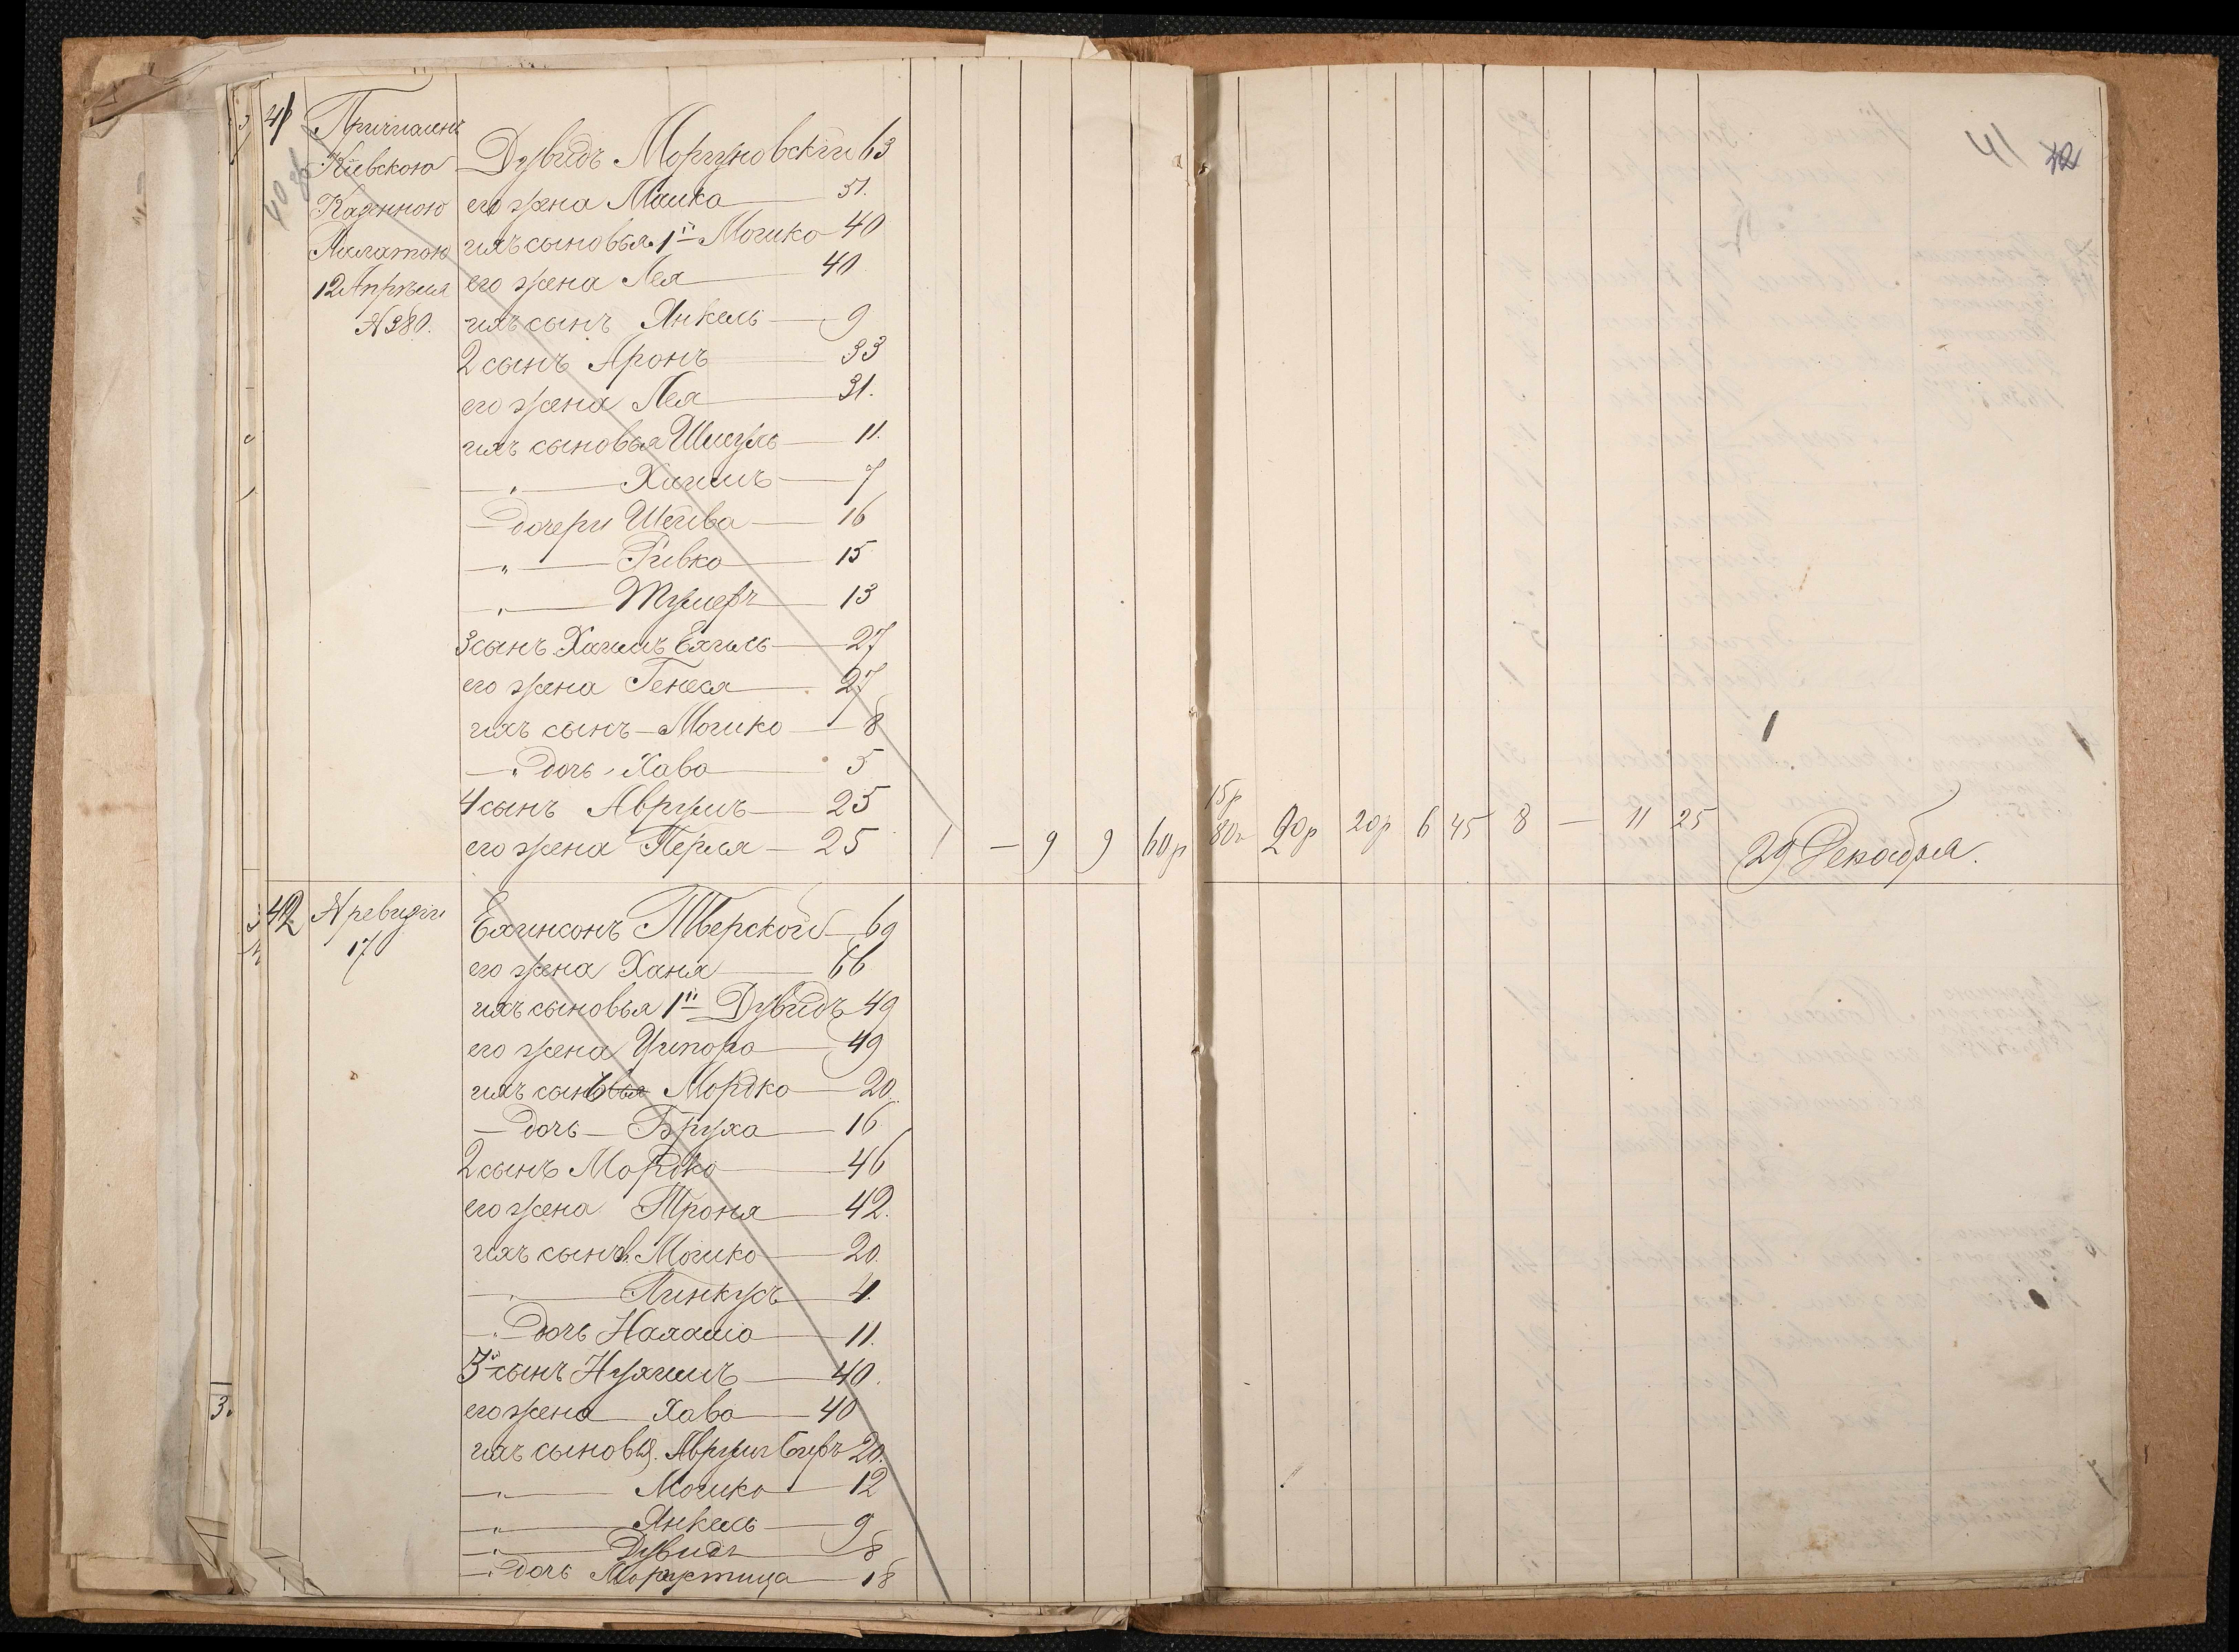 41 Причислен
Кіевскою
Казенною
Палатою
12 Апрѣля
№ 380.
Дувидъ Моргуновскій 63
его жена Маика 51.
ихъ сыновья 1й Мошко 40
его жена Лея 40
ихъ сынъ Янкель 9
2 сынъ Аронъ 33
его жена Лея 31.
ихъ сыновья Шмуль 11.
—„— Хаимъ 7
— дочери Шейва 16
—„— Ривка 15
—„— 13
3 сынъ Хаимъ Ехиль 27
его жена Генеся 27
ихъ сынъ — Мошко 8
—„ дочь Хава 5
4 сынъ Аврумъ 25
его жена Перля — 25 1 — 9 9 60р
15р
80к 20р 20р 6 45 8 — 11 25
29 Декабря.
42 № ревизіи
17
Тверской 69
его жена Ханя 66
ихъ сыновья 1й Дувидъ 49
его жена Ципора 49
ихъ сынъ Мордко 20
— дочь — Бруха 16
2 сынъ Мордко 46
его жена Троня 42.
ихъ сынъ. Мошко 20
—„— Пинкусъ 4.
—„ дочь Нахама 11.
3й сынъ Нухимъ 40.
его жена Хава 40
ихъ сыновья. Аврум Беръ 20.
—„— Мошко 12
—„— Янкель 9
—„— Дувидъ 8
—„ дочь 18
41